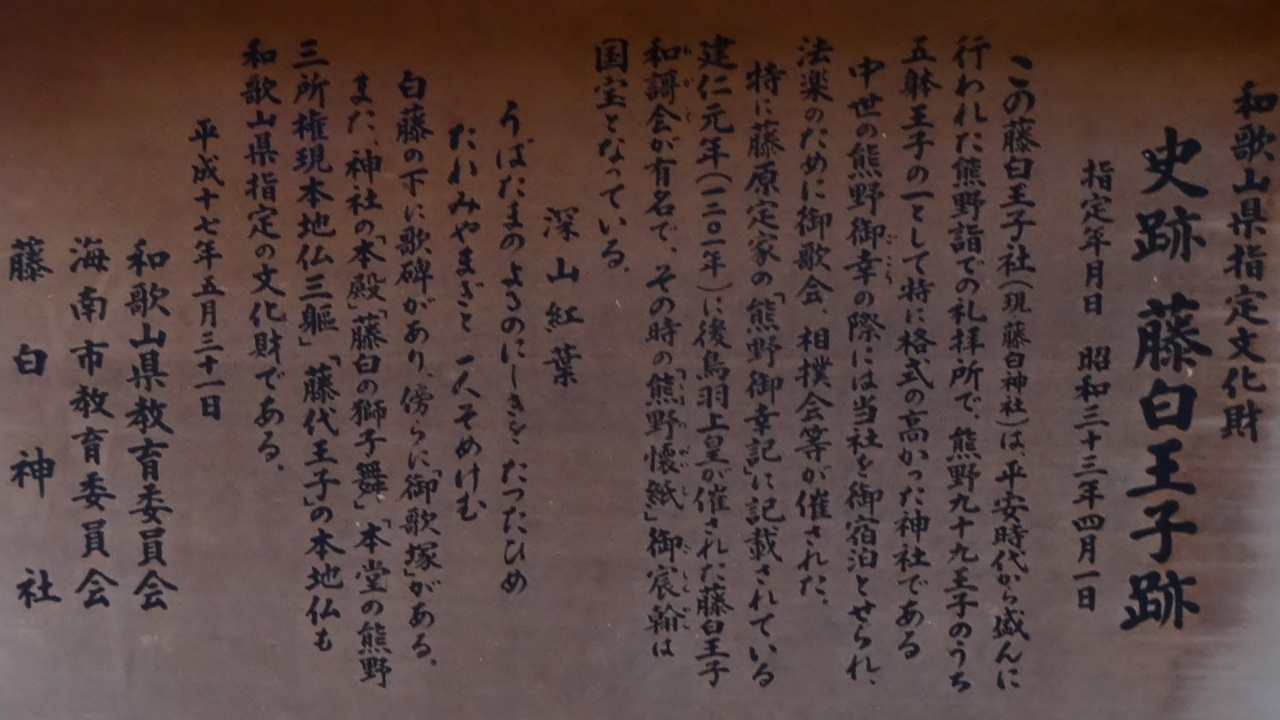 和歌山県指定文化財
史跡 藤白王子跡
指定年月日 昭和三十三年四月一日
この藤白王子社(現藤白神社)は、平安時代から盛んに
行われた熊野詣での礼拝所で、熊野九十九王子のうち
五躰王子の一として特に格式の高かった神社である
中世の熊野御幸の際には当社を御宿泊とせられ、
法楽のために御歌会、相撲会等が催された。
特に藤原定家の「熊野御幸記」に記載されている
建仁元年(一二〇一年)に後鳥羽上皇が催された藤白王子
和謌会が有名で、その時の「熊野懐紙」御宸翰は
国宝となっている。
深山紅葉
うばたまのよるのにしきをたつたひめ
たれみやまぎと一人そめけむ
白藤の下に歌碑があり、傍らに「御歌塚」がある。
また、神社の「本殿」「藤白の獅子舞」「本堂の熊野
三所権現本地仏三軀」「藤代王子」の本地仏も
和歌山県指定の文化財である。
平成十七年五月三十一日
和歌山県教育委員会
海南市教育委員会
藤白神社